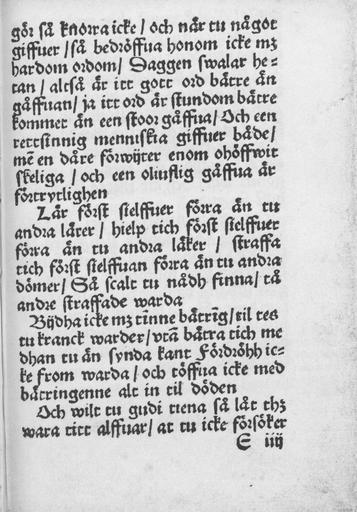 gör så knorra icke / och når tu något
giffuer / så bedröffua honom icke mꝫ
hardom ordom / Daggen swalar he-
tan / altså är itt gott ord bätre än
gåffuan / ja itt ord är stundom bätre
kommet än een stoor gåffua / Och een
rettsinnig menniskia giffuer både /
mẽ en dåre förwijter enom ohöffwit
skeliga / och een oliuflig gåffua är
förtrytlighen
Lär först sielffuer förra än tu
andra lärer / hielp tich först sielffuer
förra än tu andra läker / straffa
tich först sielffuan förra än tu andra
dömer / Så scalt tu nådh finna / tå
andre straffade warda
Bijdha icke mꝫ tinne bätrĩg / til tes
tu kranck warder / vtã bätra tich me
dhan tu än synda kant Fördröhh ic-
ke from warda / och töffua icke med
bätringenne alt in til döden
Och wilt tu gudi tiena så låt thꝫ
wara titt alffuar / at tu icke försöker
E iiij